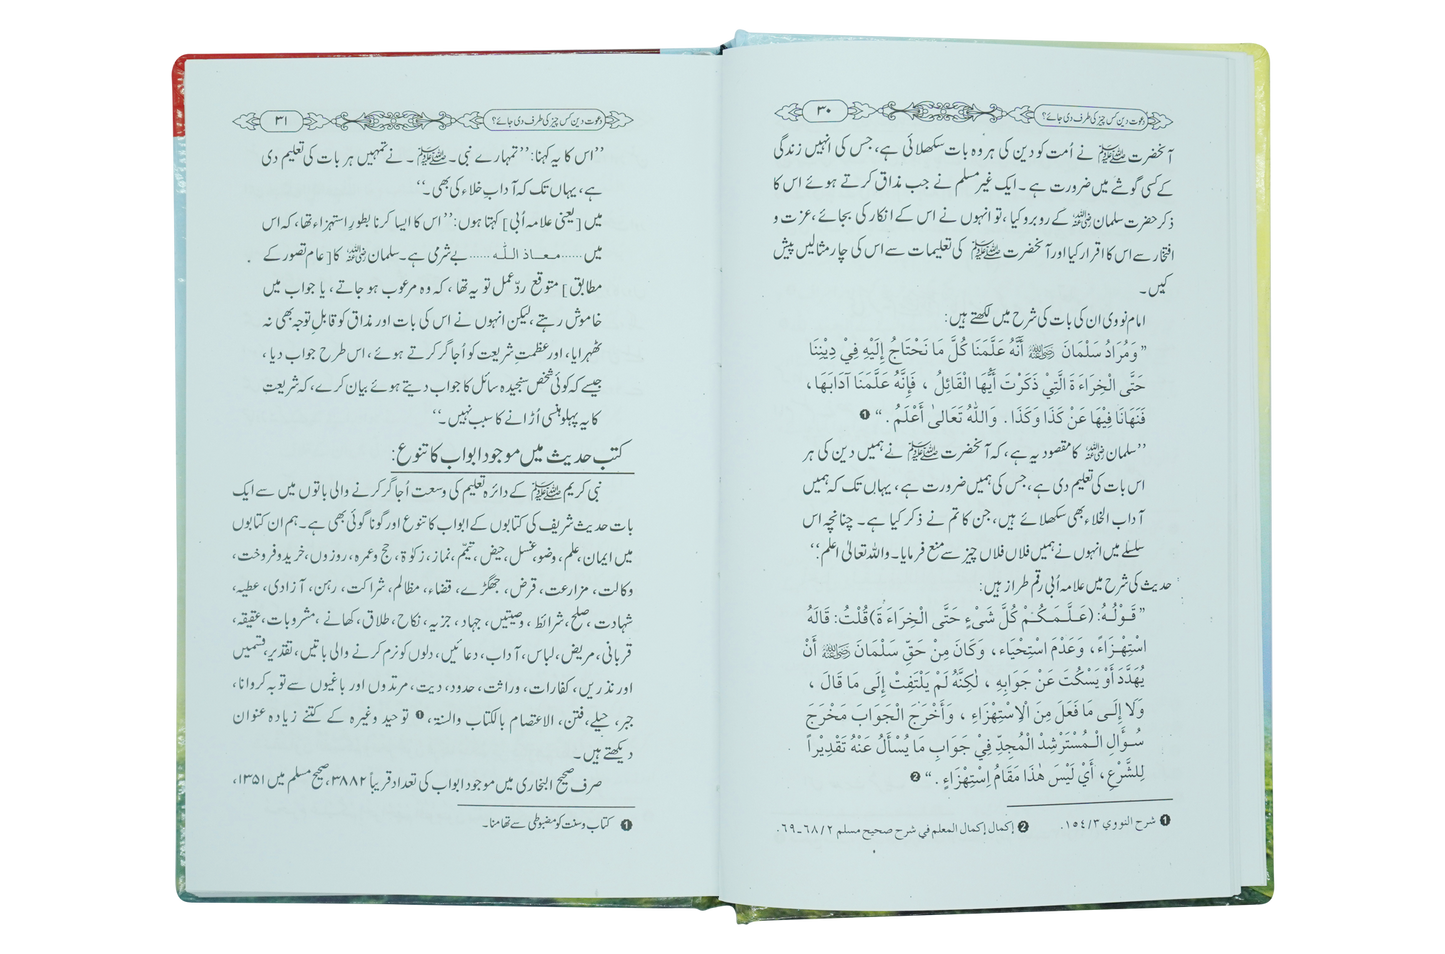 دعوت دین کس چیز کی طرف دی جائے؟
۳۰
آنحضرت ﷺ نے اُمت کو دین کی ہر وہ بات سکھلائی ہے، جس کی انہیں زندگی
کے کسی گوشے میں ضرورت ہے۔ ایک غیر مسلم نے جب مذاق کرتے ہوئے اس کا
ذکر حضرت سلمان رضی اللہ عنہ کے روبرو کیا، تو انہوں نے اس کے انکار کی بجائے، عزت و
افتخار سے اس کا اقرار کیا اور آنحضرت ﷺ کی تعلیمات سے اس کی چار مثالیں پیش
کیں۔
امام نووی ان کی بات کی شرح میں لکھتے ہیں:
”وَمُرَادُ سَلْمَانَ رضي الله عنه أَنَّهُ عَلَّمَنَا كُلَّ مَا نَحْتَاجُ إِلَيْهِ فِيْ دِيْنِنَا
حَتَّى الْخِرَاءَةَ الَّتِيْ ذَكَرْتَ أَيُّهَا الْقَائِلُ ، فَإِنَّهُ عَلَّمَنَا آدَابَهَا ،
فَنَهَانَا فِيْهَا عَنْ كَذَا وَكَذَا . وَاللّٰهُ تَعَالىٰ أَعْلَمُ .“ ❶
’’سلمان رضی اللہ عنہ کا مقصود یہ ہے، کہ آنحضرت ﷺ نے ہمیں دین کی ہر
اس بات کی تعلیم دی ہے، جس کی ہمیں ضرورت ہے، یہاں تک کہ ہمیں
آداب الخلاء بھی سکھلائے ہیں، جن کا تم نے ذکر کیا ہے۔ چنانچہ اس
سلسلے میں انہوں نے ہمیں فلاں فلاں چیز سے منع فرمایا۔ واللہ تعالیٰ اعلم.‘‘
حدیث کی شرح میں علامہ اُبی رقم طراز ہیں:
”قَوْلُهُ: (عَلَّمَكُمْ كُلَّ شَيْءٍ حَتَّى الْخِرَاءَةَ) قُلْتُ: قَالَهُ
اسْتِهْزَاءً ، وَعَدْمَ اسْتِحْيَاء ، وَكَانَ مِنْ حَقِّ سَلْمَانَ رضي الله عنه أَنْ
يُهَدِّدَ أَوْ يَسْكُتَ عَنْ جَوَابِهِ ، لٰكِنَّهُ لَمْ يَلْتَفِتْ إِلَى مَا قَالَ ،
وَلا إِلَى مَا فَعَلَ مِنَ الْاِسْتِهْزَاءِ ، وَأَخْرَجَ الْجَوَابَ مَخْرَجَ
سُؤَالِ الْمُسْتَرْشِدْ الْمُجِدِّ فِيْ جَوَابِ مَا يُسْأَلُ عَنْهُ تَقْدِيْراً
لِلشَّرْعِ ، أَيْ لَيْسَ هٰذَا مَقَامُ اِسْتِهْزَاءٍ .“ ❷
❶ شرح النووي ١٥٤/٣. ❷ إكمال إكمال المعلم في شرح صحيح مسلم ٦٨/٢-٦٩.
دعوت دین کس چیز کی طرف دی جائے؟
۳۱
’’اس کا یہ کہنا: ’’تمہارے نبی۔ ﷺ۔ نے تمہیں ہر بات کی تعلیم دی
ہے، یہاں تک کہ آدابِ خلاء کی بھی۔‘‘
میں [یعنی علامہ اُبی] کہتا ہوں: ’’اس کا ایسا کرنا بطورِ استہزاء تھا، کہ اس
میں ...... معاذ اللہ ...... بے شرمی ہے۔ سلمان رضی اللہ عنہ کا [عام تصور کے
مطابق] متوقع ردِّعمل تو یہ تھا ، کہ وہ مرعوب ہو جاتے، یا جواب میں
خاموش رہتے ، لیکن انہوں نے اس کی بات اور مذاق کو قابلِ توجہ بھی نہ
ٹھہرایا، اور عظمتِ شریعت کو اُجاگر کرتے ہوئے، اس طرح جواب دیا ،
جیسے کہ کوئی شخص سنجیدہ سائل کا جواب دیتے ہوئے بیان کرے، کہ شریعت
کا یہ پہلو ہنسی اُڑانے کا سبب نہیں۔‘‘
کتب حدیث میں موجود ابواب کا تنوع:
نبی کریم ﷺ کے دائرہ تعلیم کی وسعت اُجاگر کرنے والی باتوں میں سے ایک
بات حدیث شریف کی کتابوں کے ابواب کا تنوع اور گونا گوئی بھی ہے۔ ہم ان کتابوں
میں ایمان، علم، وضو، غسل، حیض، تیمّم، نماز، زکوٰۃ، حج وعمرہ، روزوں، خرید وفروخت،
وکالت، مزارعت، قرض، جھگڑے، قضاء، مظالم، شراکت، رہن، آزادی، عطیہ،
شہادت، صلح، شرائط ، وصیتیں، جہاد، جزیہ، نکاح، طلاق، کھانے، مشروبات، عقیقہ،
قربانی، مریض، لباس، آداب، دعائیں، دلوں کو نرم کرنے والی باتیں، تقدیر، قسمیں
اور نذریں، کفارات، وراثت، حدود، دیت، مرتدوں اور باغیوں سے توبہ کروانا،
جبر، حیلے، فتن، الاعتصام بالکتاب والسنۃ، ❶ توحید وغیرہ کے کتنے زیادہ عنوان
دیکھتے ہیں۔
صرف صحیح البخاری میں موجود ابواب کی تعداد قریباً ۳۸۸۲، صحیح مسلم میں ۱۳۵۱،
❶ کتاب وسنت کو مضبوطی سے تھامنا۔